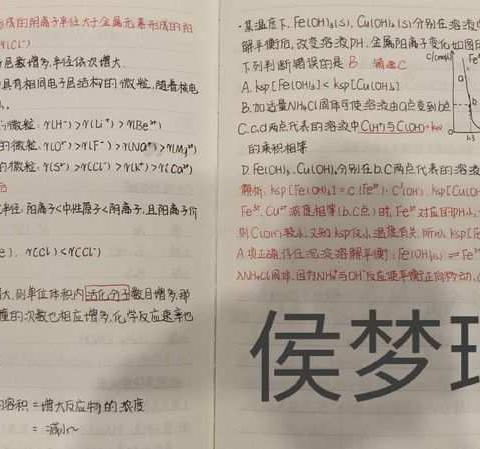 形成的阴离子半径大于金属元素形成的阳
r(Cl⁻)
层数增多,半径依次增大
具有相同电子层结构的微粒,随着核电
微粒:r(H⁻)>r(Li⁺)>r(Be²⁺)
的微粒:r(O²⁻)>r(F⁻)>r(Na⁺)>r(Mg²⁺)
的微粒:r(S²⁻)>r(Cl⁻)>r(K⁺)>r(Ca²⁺)
半径:阳离子<中性原子<阴离子,且阳离子价
r(Cl)<r(Cl⁻)
大,则单位体积内活化分子数目增多,单
撞的次数也相应增多,化学反应速率也
容积=增大反应物的浓度
=减小~
·某温度下,Fe(OH)₃(s),Cu(OH)₂(s)分别在溶液
解平衡后,改变溶液pH,金属阳离子变化如图
下列判断错误的是 B
A.ksp[Fe(OH)₃]<ksp[Cu(OH)₂
B.加适量NH₄Cl固体可使溶液由a点变到b点
C.c.d两点代表的溶液中C(H⁺)与C(OH⁻)
的乘积相等
D.Fe(OH)₃、Cu(OH)₂分别在b.c两点代表的溶液
解析:ksp[Fe(OH)₃]=C(Fe³⁺)·C³(OH⁻),ksp[Cu(OH
Fe³⁺.Cu²⁺浓度相等(b.c点)时,Fe³⁺对应的pH小,
则C(OH⁻)较小,又知ksp仅与温度有关,所以ksp[Fe(
A项正确,存在沉淀溶解平衡:Fe(OH)₃(s)⇌Fe³⁺
入NH₄Cl固体,因为NH₄⁺与OH⁻反应使平衡正向移动,C
c/(mol/L)
Fe
a
b
1.3
侯梦